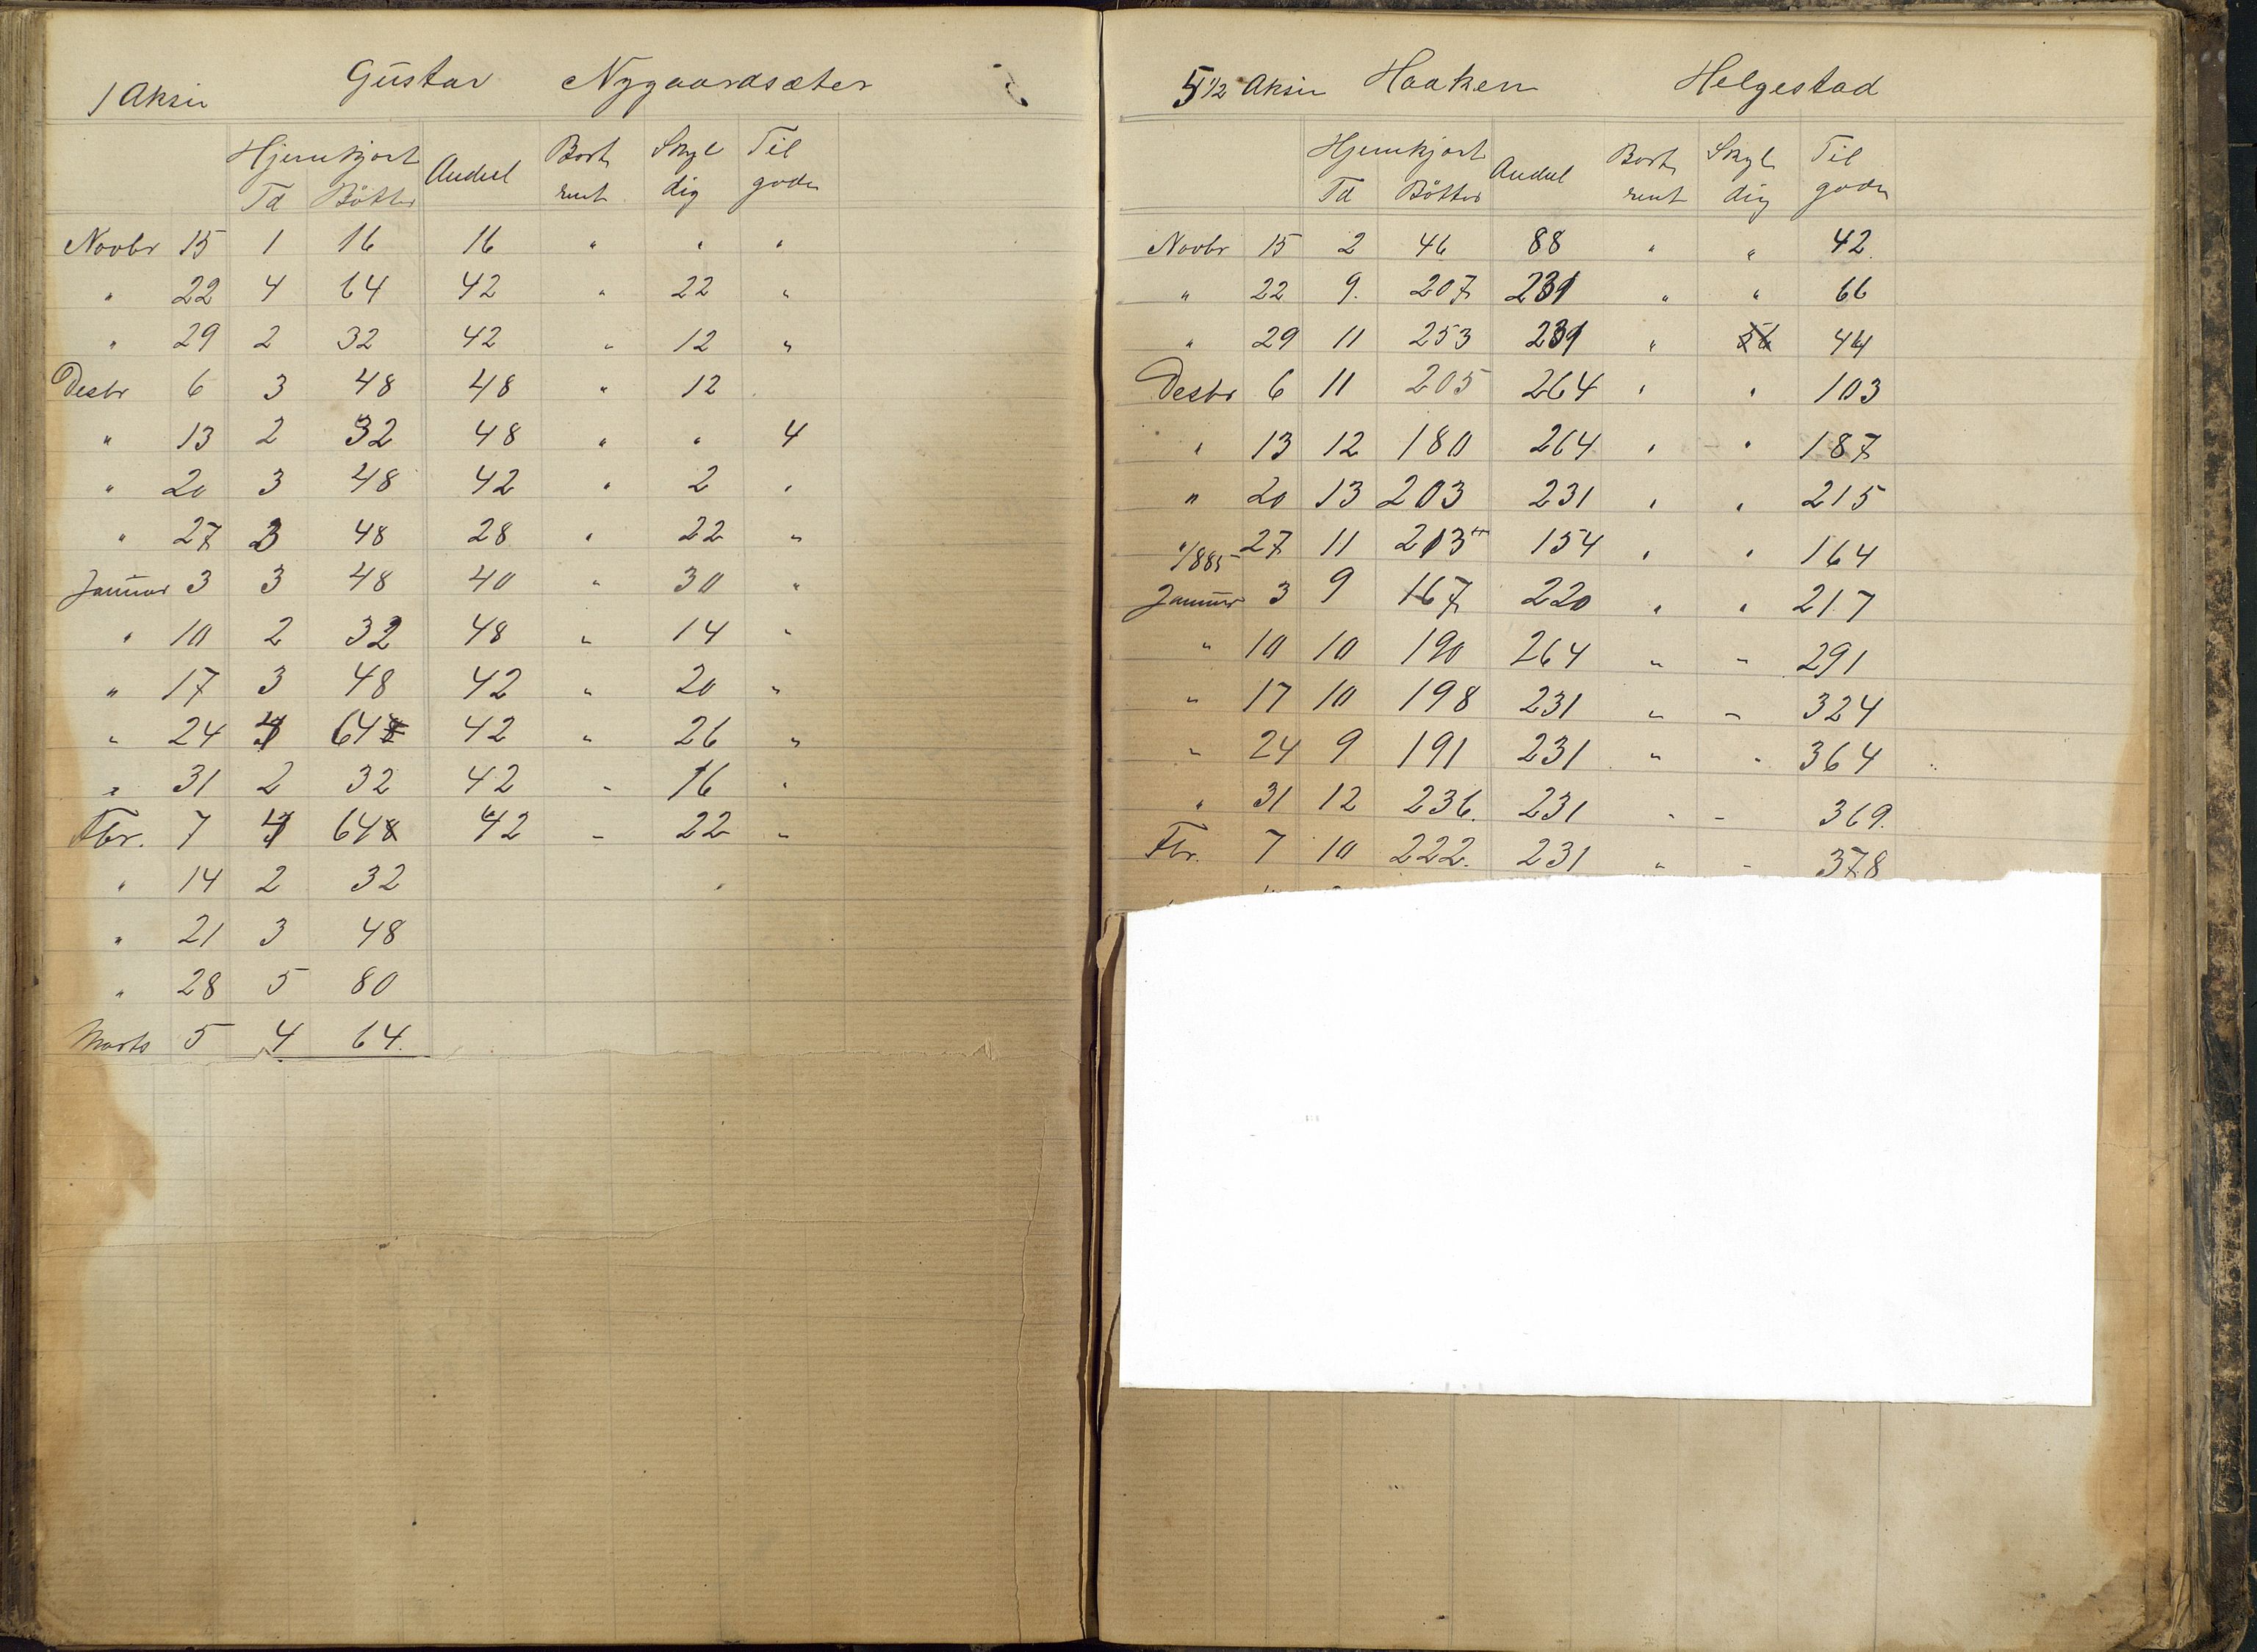 1 Aksie Gustav Nygaardsæter
Hjemkjørt Andeel Bort Skyl Til
Td Bøtter rent dig gode
Novbr 15 1 16 16 " " "
" 22 4 64 42 " 22 "
" 29 2 32 42 " 12 "
Desbr 6 3 48 48 " 12
" 13 2 32 48 " " 4
" 20 3 48 42 " 2 "
" 27 3 48 28 " 22 "
Januar 3 3 48 40 " 30 "
" 10 2 32 48 " 14 "
" 17 3 48 42 " 20 "
" 24 4 64 42 " 26 "
" 31 2 32 42 " 16 "
Fbr. 7 4 64 42 " 22 "
" 14 2 32
" 21 3 48
" 28 5 80
Marts 5 4 64.
5 1/2 Aksie Haaken Helgestad
Hjemkjørt Andeel Bort Skyl Til
Td Bøtter rent dig gode
Novbr 15 2 46 88 " " 42
" 22 9. 207 231 " " 66
" 29 11 253 231 " 56 44
Desbr 6 11 205 264 " " 103
" 13 12 180 264 " " 187
" 20 13 203 231 " " 215
" 27 11 213 154 " " 164
1885
Januar 3 9 167 220 " " 217
" 10 10 190 264 " " 291
" 17 10 198 231 " " 324
" 24 9 191 231 " " 364
" 31 12 236. 231 " " 369.
Fbr. 7 10 222. 231 " " 378